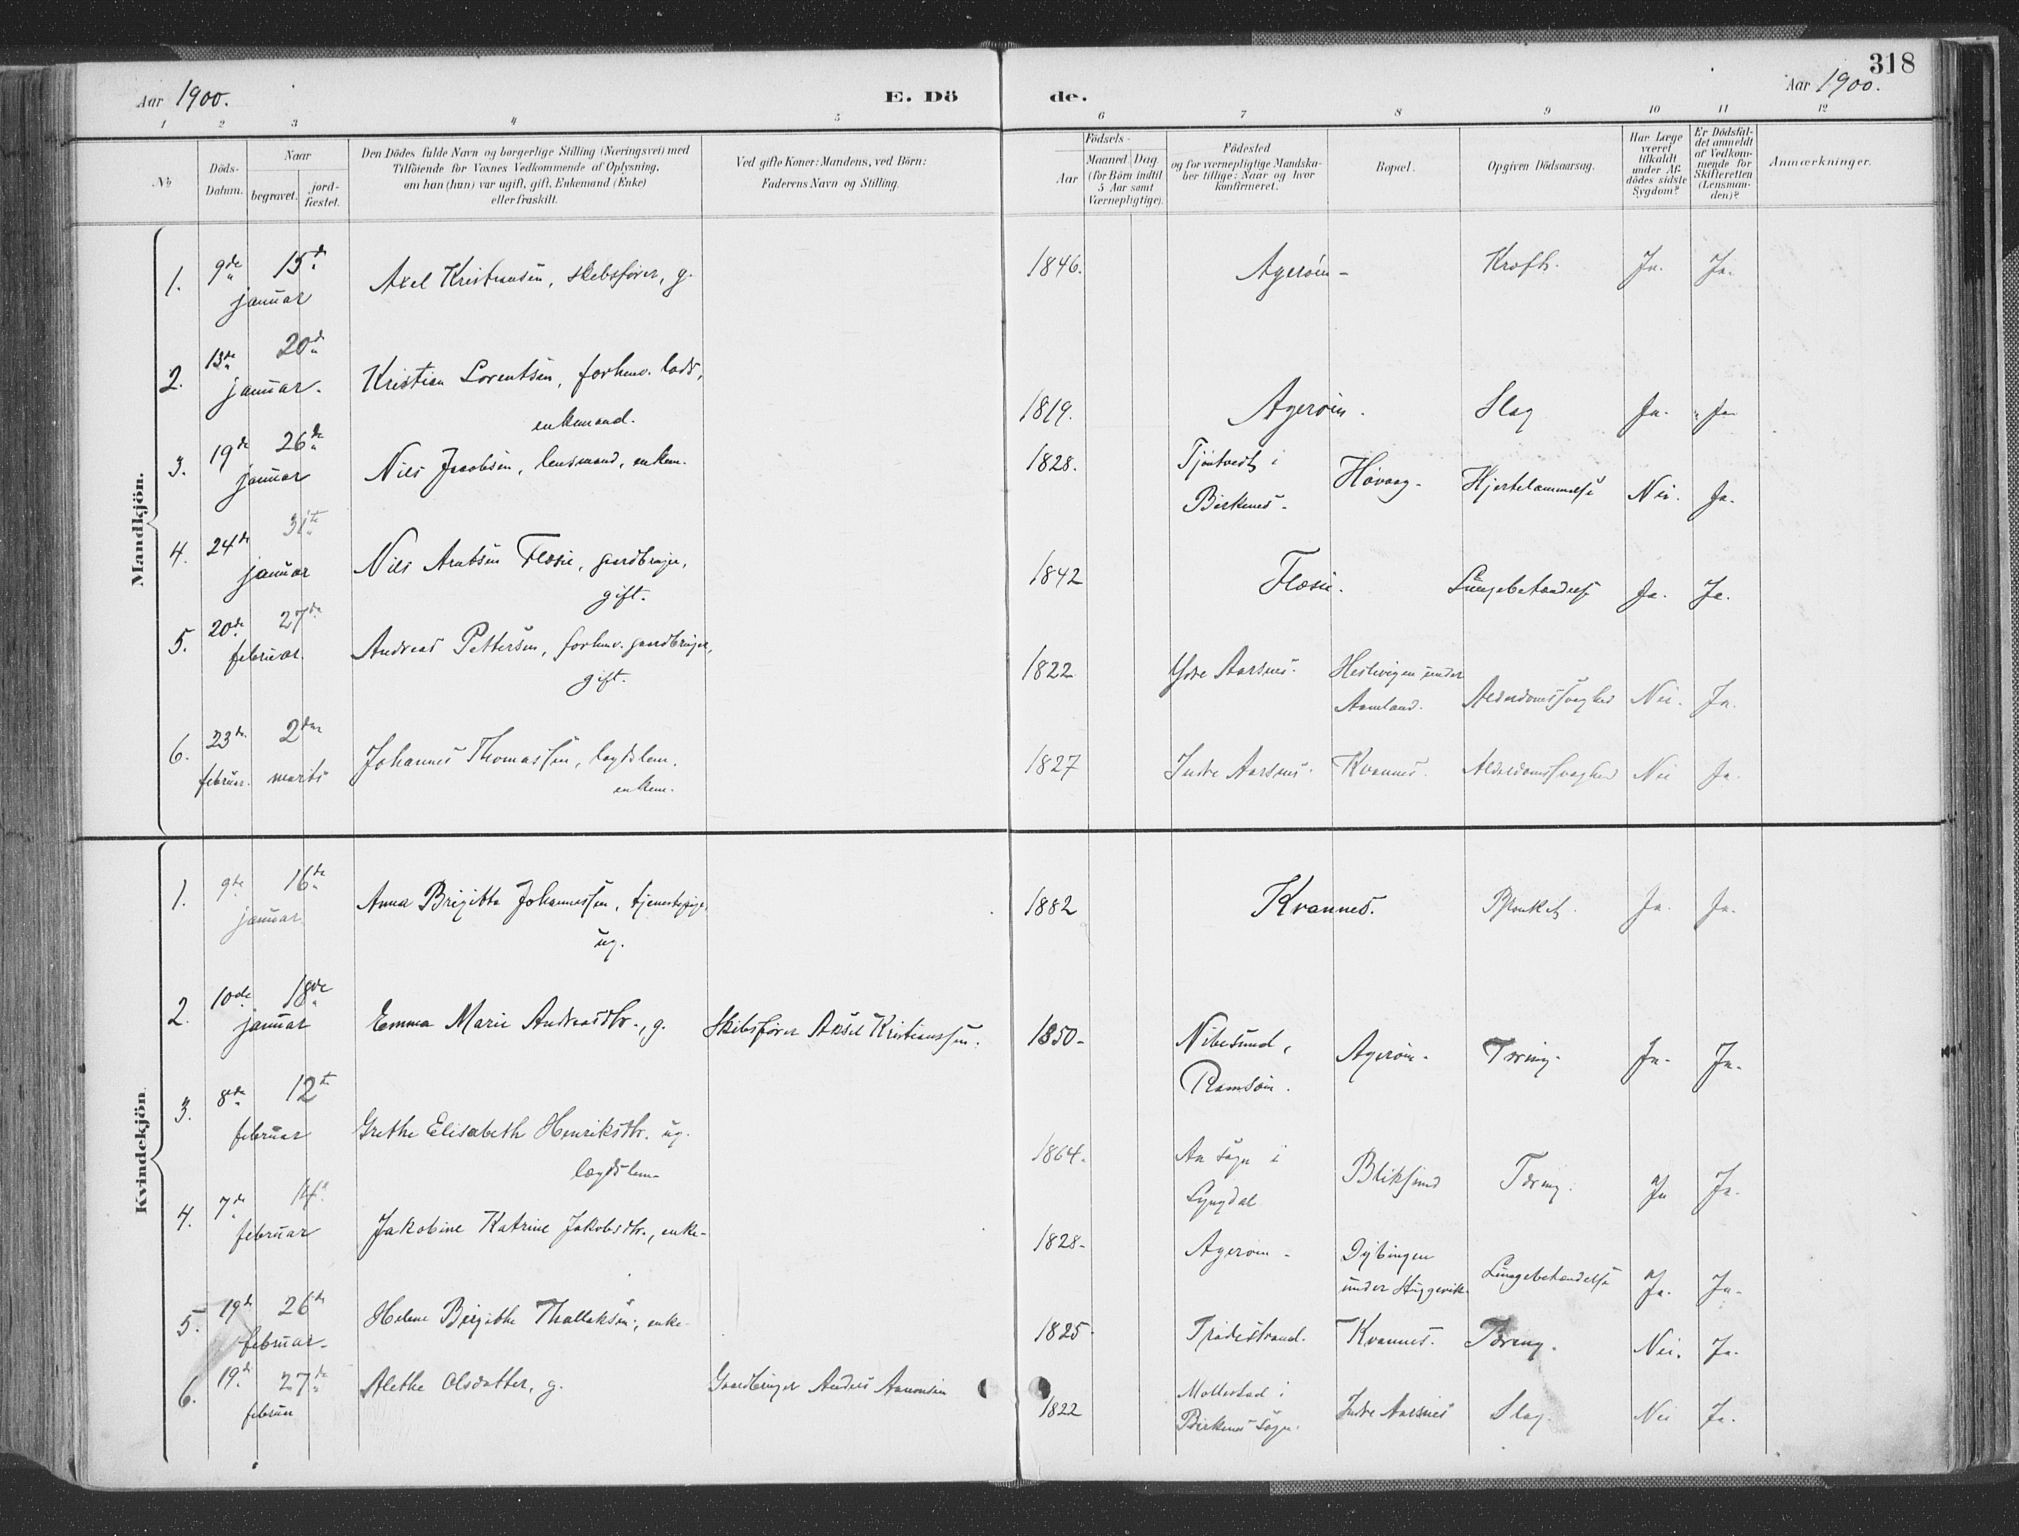 318
Aar 1900.
E. Dö
de.
Aar 1900.
1 2 3 4 5 6 7 8 9 10 11 12
No
Döds-Datum.
Naar
begravet.
jord-fæstet.
Den Dödes fulde Navn og borgerlige Stilling (Næringsvei) med
Tilföiende for Voxnes Vedkommende af Oplysning,
om han (hun) var ugift, gift, Enkemand (Enke)
eller fraskilt.
Ved gifte Koner: Mandens, ved Börn:
Faderens Navn og Stilling.
Födsels-
Aar
Maaned (for Börn indtil 5 Aar samt Værnepligtige).
Dag
Födested
og for værnepligtige Mandska-
ber tillige: Naar og hvor
konfirmeret.
Bopæl.
Opgiven Dödsaarsag.
Har Læge været tilkaldt under Af-dödes sidste Sygdom?
Er Dödsfal-det anmeldt af Vedkom-mende for Skifteretten (Lensman-den)?
Anmærkninger.
Mandkjön.
1. 9de januar 15d. Axel Kristiansen, skibsfører, g. 1846. Agerøen Kræft. Ja. Ja.
2. 13de januar. 20de Kristian Lorentsen, forhenv. lods,
enkemand. 1819. Agerøen. Slag Ja. Ja
3. 19de januar 26de Nils Jacobsen, lensmand, enkem. 1828. i
Birkenes. Høvaag. Hjertelammelse Nei. Ja.
4. 24de januar 31te Nils Flæsie, gaardbruger,
gift. 1842 Flæsie. Lungebetændelse Ja. Ja.
5. 20de februar. 27de Andreas Pettersen, forhenv. gaardbruger,
gift. 1822 Ydre Aarsnes. under
Aamland. Alderdomssvaghed Nei. Ja.
6. 23de februar. 2den marts Johannes Thomassen, lægdslem.
enkem. 1827 Indre Aarsnes. Kvannes. Alderdomssvaghed Nei Ja.
Kvindekjön.
1. 9de januar 16de Anna Brigitta Johannessen, tjenestepige,
ug. 1882 Kvannes. Ja. Ja.
2. 10de januar 18de Emma Marie Andreasdtr., g. Skibsfører Aksel Kristianssen. 1850. Nibesund,
Ramsøen. Agerøen. Tæring. Ja. Ja.
3. 8de februar 12te Grethe Elisabeth Henriksdtr. ug.
lægdslem 1864. Aa sogn i
Lyngdal Bliksund Tæring. Ja Ja.
4. 7de februar 14de Jakobine Katrine Jakobsdtr., enke. 1828. Agerøen. Dybingen
under Stiggevik. Lungebetændelse Ja. Ja.
5. 19de februar. 26de Helene Birgithe Thallaksen, enke. 1825. Kvannes. Tæring. Nei. Ja.
6. 19de 27de Alethe Olsdatter, g. Gaardbruger Anders Aanonsen 1822 Mollestad i
Birkenes sogn. Indre Aarsnes Slag. Nei Ja.